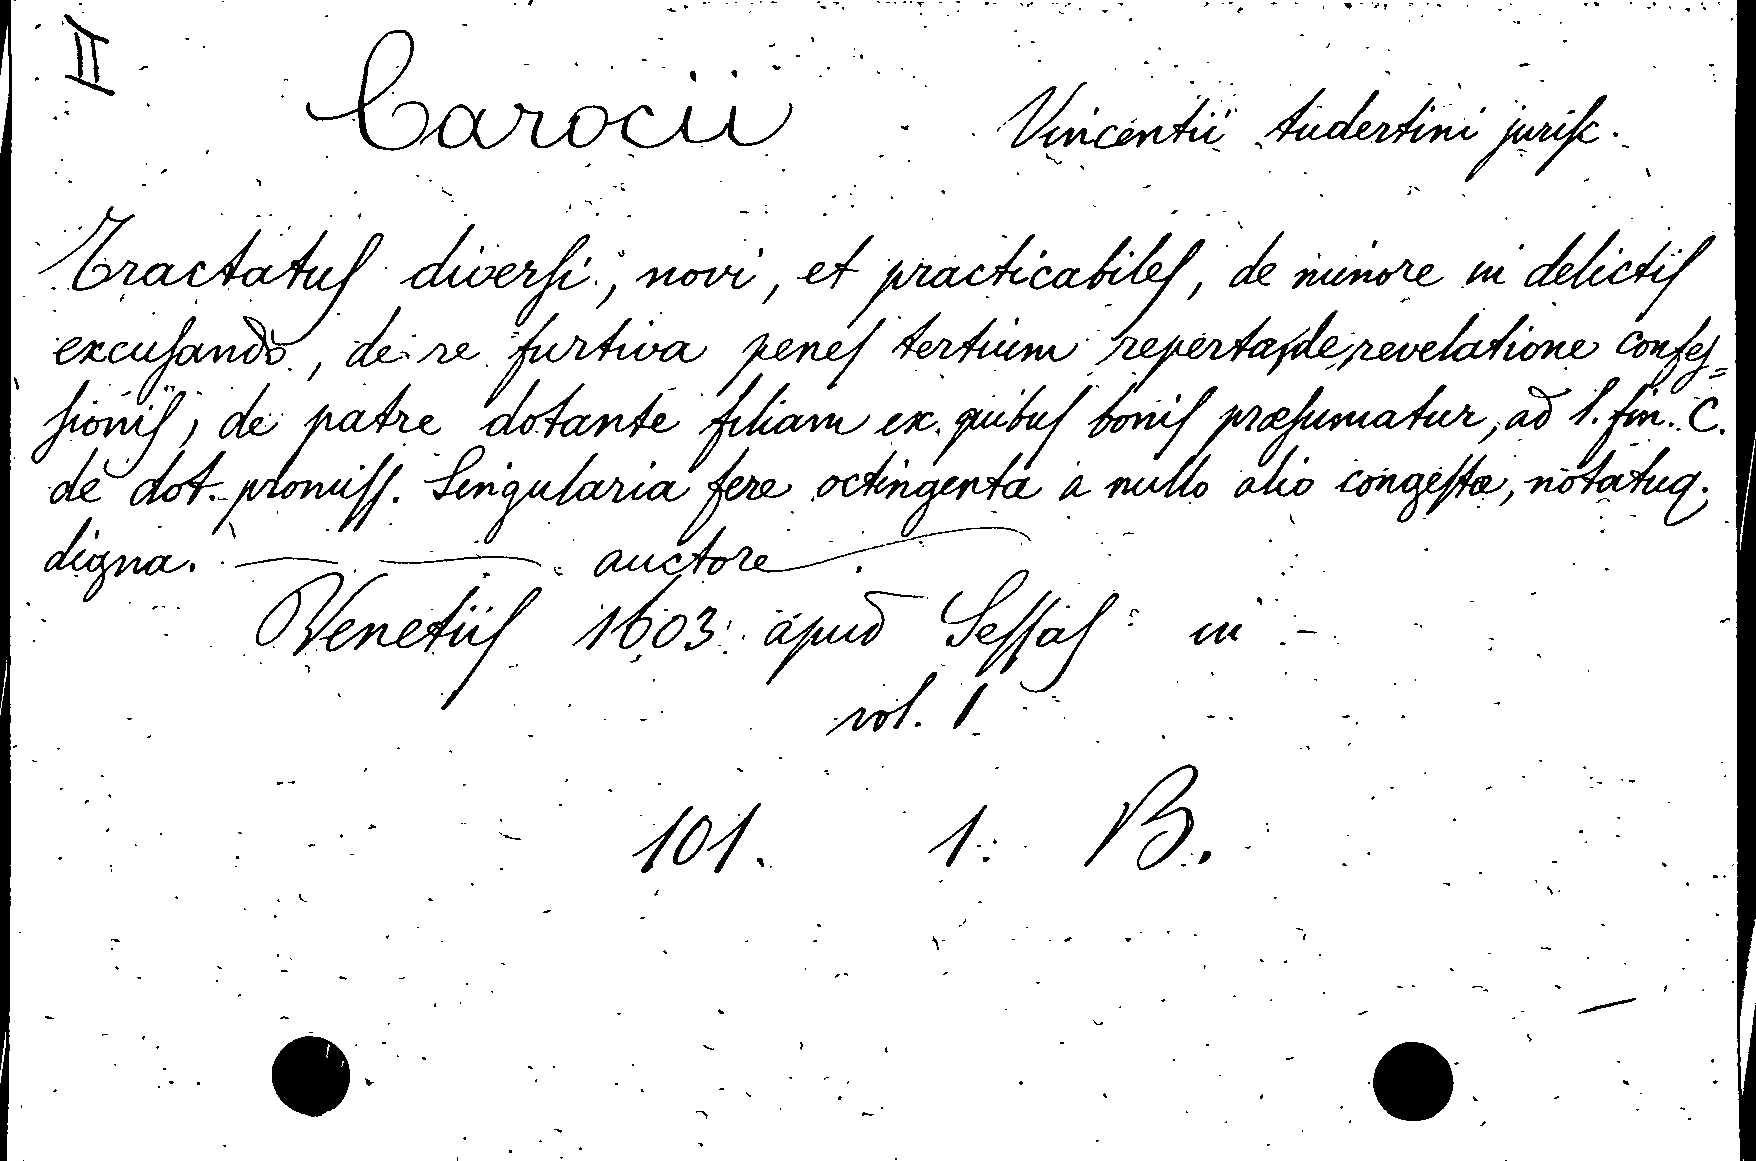 II
Carocii Vincentii tudertini jurisc.
Tractatus diversi, novi, et practicabiles, de minore in delictis
excusando, de re furtiva penes tertium reperta, de revelatione confes=
sionis, de patre dotante filiam ex quibus bonis præsumatur, ad l. fin. C.
de dot. promiss. Singularia fere octingenta a nullo alio congesta, notatuq.
digna. auctore
Venetiis 1603 apud Sessas in -
vol. 1
101. 1. B.